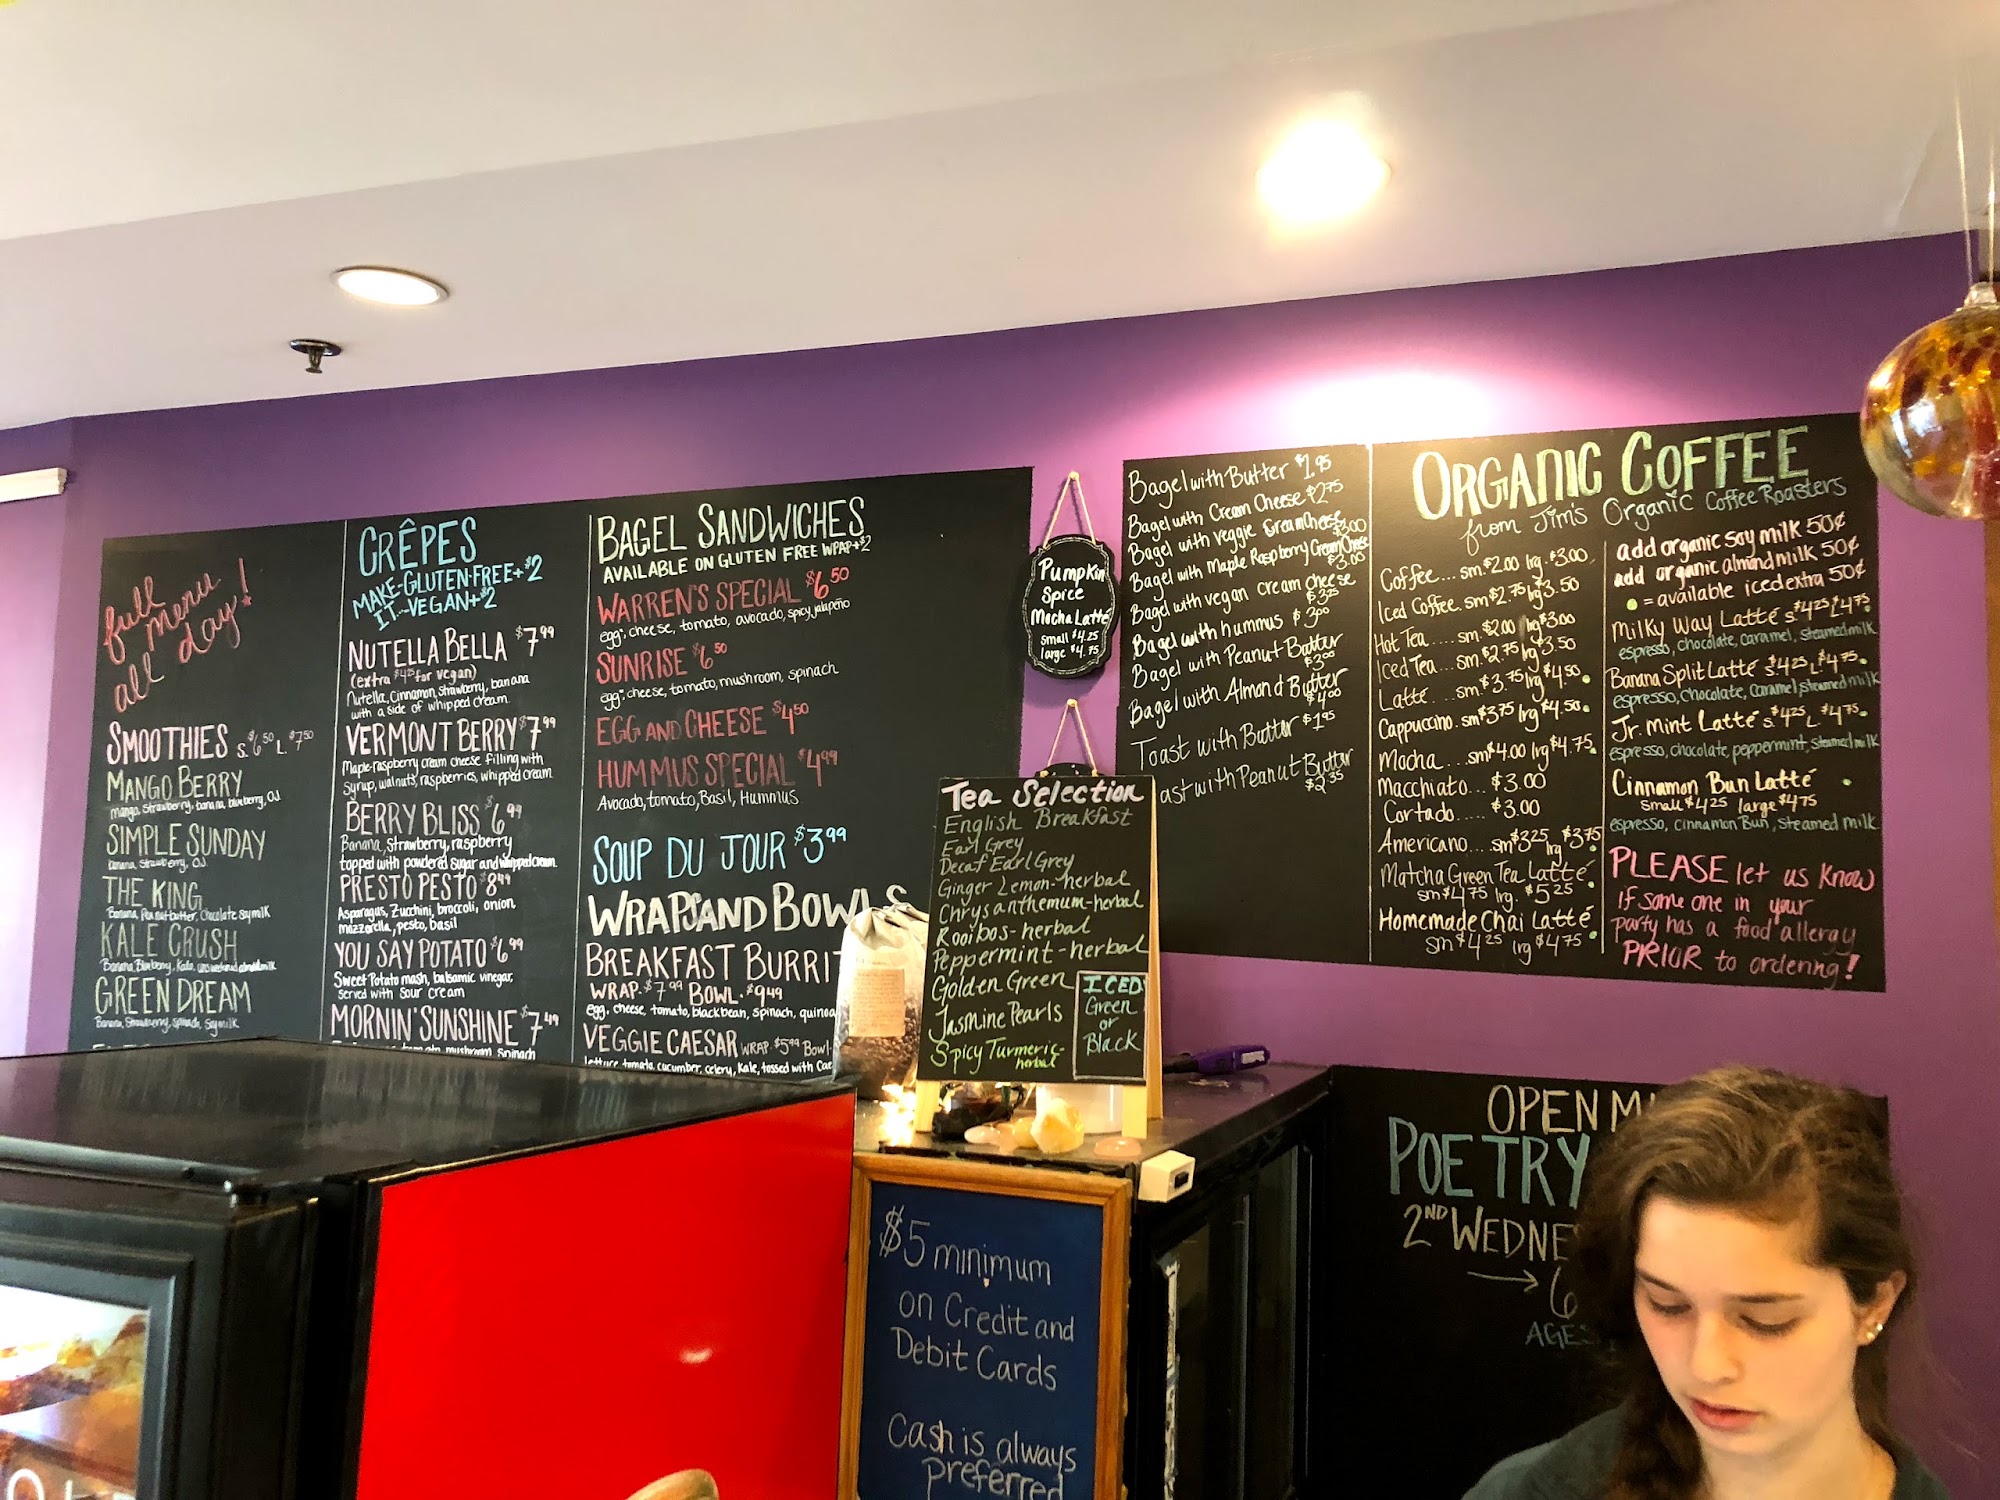 full
menu
all day!
SMOOTHIES S. $6.50 L. $7.50
MANGO BERRY
mango, strawberry, banana, blueberry, OJ
SIMPLE SUNDAY
banana, strawberry, OJ
THE KING
Banana, Peanut butter, Chocolate soymilk
KALE CRUSH
Banana, Blueberry, Kale, almond milk
GREEN DREAM
Banana, Strawberry, Spinach, Soymilk
CRÊPES
MAKE GLUTEN-FREE + $2
IT VEGAN + $2
NUTELLA BELLA $7.99
(extra $4.25 for vegan)
Nutella, Cinnamon, Strawberry, banana
with a side of whipped cream
VERMONT BERRY $7.99
Maple-raspberry cream cheese filling with
syrup, walnuts, raspberries, whipped cream
BERRY BLISS $6.99
Banana, Strawberry, raspberry
topped with powdered sugar and whipped cream
PRESTO PESTO $8.49
Asparagus, Zucchini, broccoli, onion,
mozzarella, pesto, basil
YOU SAY POTATO $6.99
Sweet Potato mash, balsamic vinegar,
served with sour cream
MORNIN' SUNSHINE $7.49
tomato, mushroom, spinach
BAGEL SANDWICHES
AVAILABLE ON GLUTEN FREE WRAP + $2
WARREN'S SPECIAL $6.50
egg, cheese, tomato, avocado, spicy jalapeño
SUNRISE $6.50
egg, cheese, tomato, mushroom, spinach
EGG AND CHEESE $4.50
HUMMUS SPECIAL $4.99
Avocado, tomato, Basil, Hummus
SOUP DU JOUR $3.99
WRAPS AND BOWLS
BREAKFAST BURRIT
WRAP. $7.99 BOWL. $9.49
egg, cheese, tomato, blackbean, spinach, quinoa
VEGGIE CAESAR WRAP. $5.99 Bowl.
lettuce, tomato, cucumber, celery, kale, tossed with Cae
Pumpkin
Spice
Mocha Latté
small $4.25
large $4.75
Tea Selection
English Breakfast
Earl Grey
Decaf Earl Grey
Ginger Lemon-herbal
Chrysanthemum-herbal
Rooibos-herbal
Peppermint-herbal
Golden Green
Jasmine Pearls
Spicy Turmeric-
herbal
ICED
Green
or
Black
Bagel with Butter $1.95
Bagel with Cream Cheese $2.75
Bagel with veggie Cream Cheese $3.00
Bagel with Maple Raspberry Cream Cheese
$3.00
Bagel with vegan cream cheese
$3.25
Bagel with hummus $3.00
Bagel with Peanut Butter
$3.00
Bagel with Almond Butter
$4.00
Toast with Butter $1.95
ast with Peanut Butter
$2.35
ORGANIC COFFEE
from Jim's Organic Coffee Roasters
Coffee... sm. $2.00 lrg. $3.00
Iced Coffee. sm $2.75 lrg $3.50
Hot Tea.... sm. $2.00 lrg $3.00
Iced Tea... sm. $2.75 lrg $3.50
Latté... sm. $3.75 lrg $4.50
Cappuccino. sm $3.75 lrg $4.50
Mocha... sm $4.00 lrg $4.75
Macchiato... $3.00
Cortado..... $3.00
Americano.... sm $3.25 lrg $3.75
Matcha Green Tea Latté
sm $4.75 lrg. $5.25
Homemade Chai Latté
sm $4.25 lrg $4.75
add organic soy milk 50¢
add organic almond milk 50¢
= available iced extra 50¢
Milky Way Latté s. $4.25 L $4.75
espresso, chocolate, caramel, steamed milk
Banana Split Latté s. $4.25 L. $4.75
espresso, chocolate, caramel, steamed milk
Jr. Mint Latté s. $4.25 L. $4.75
espresso, chocolate, peppermint, steamed milk
Cinnamon Bun Latté
small $4.25 large $4.75
espresso, cinnamon Bun, steamed milk
PLEASE let us know
if some one in your
party has a food allergy
PRIOR to ordering!
OPEN M
POETRY
2ND WEDNE
6
AGES
$5 minimum
on Credit and
Debit Cards
Cash is always
preferred